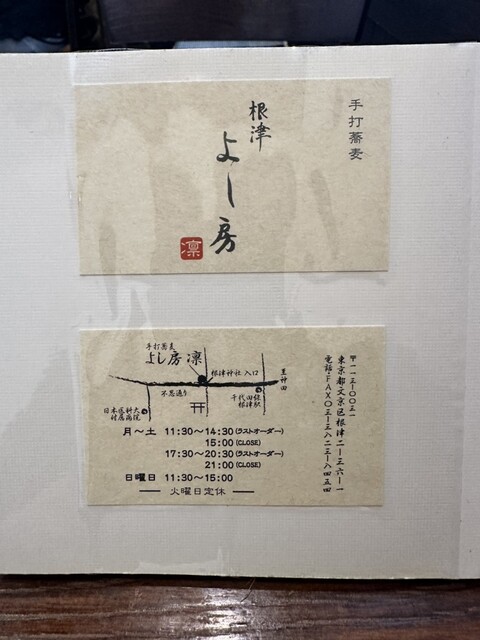 手打蕎麦
根津
よし房
凛
手打蕎麦
よし房 凛
根津神社 入口
至神田
不忍通り
千代田線
根津駅
日本医科大
付属病院
月～土 11:30～14:30(ラストオーダー)
15:00(CLOSE)
17:30～20:30(ラストオーダー)
21:00(CLOSE)
日曜日 11:30～15:00
火曜日定休
〒一一三-〇〇三一
東京都文京区根津二-三六-一
電話・FAX〇三-三八二三-八四五四